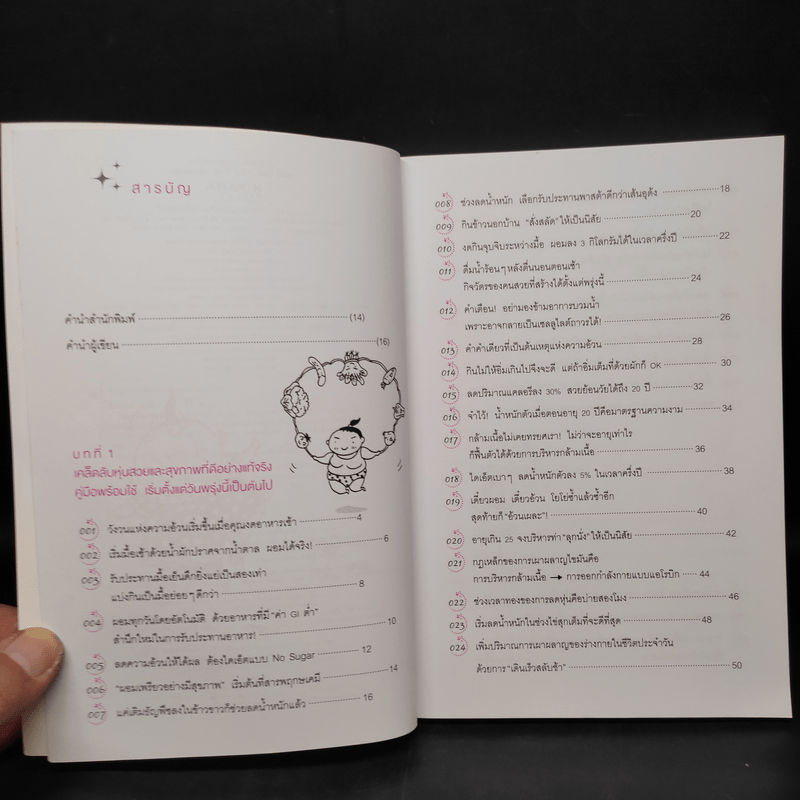 สารบัญ
คำนำสำนักพิมพ์ (14)
คำนำผู้เขียน (16)
บทที่ 1
เคล็ดลับหุ่นสวยและสุขภาพที่ดีอย่างแท้จริง
คู่มือพร้อมใช้ เริ่มตั้งแต่วันพรุ่งนี้เป็นต้นไป
001 วังวนแห่งความอ้วนเริ่มขึ้นเมื่อคุณงดอาหารเช้า 4
002 เริ่มมื้อเช้าด้วยน้ำผักปราศจากน้ำตาล ผอมได้จริง! 6
003 รับประทานมื้อเย็นดึกยิ่งแย่เป็นสองเท่า
แบ่งกินเป็นมื้อย่อยๆ ดีกว่า 8
004 ผอมทุกวันโดยอัตโนมัติ ด้วยอาหารที่มี “ค่า GI ต่ำ”
สำนึกใหม่ในการรับประทานอาหาร! 10
005 ลดความอ้วนให้ได้ผล ต้องไดเอ็ตแบบ No Sugar 12
006 “ผอมเพรียวอย่างมีสุขภาพ” เริ่มต้นที่สารพฤกษเคมี 14
007 แค่เติมธัญพืชลงในข้าวขาวก็ช่วยลดน้ำหนักแล้ว 16
008 ช่วงลดน้ำหนัก เลือกรับประทานพาสต้าดีกว่าเส้นอุด้ง 18
009 กินข้าวนอกบ้าน “สั่งสลัด” ให้เป็นนิสัย 20
010 งดกินจุบจิบระหว่างมื้อ ผอมลง 3 กิโลกรัมได้ในเวลาครึ่งปี 22
011 ดื่มน้ำร้อนๆ หลังตื่นนอนตอนเช้า
กิจวัตรของคนสวยที่สร้างได้ตั้งแต่พรุ่งนี้ 24
012 คำเตือน! อย่ามองข้ามอาการบวมน้ำ
เพราะอาจกลายเป็นเซลลูไลต์ถาวรได้! 26
013 คำคำเดียวที่เป็นต้นเหตุแห่งความอ้วน 28
014 กินไม่ให้อิ่มเกินไปจึงจะดี แต่ถ้าอิ่มเต็มที่ด้วยผักก็ OK 30
015 ลดปริมาณแคลอรีลง 30% สวยย้อนวัยได้ถึง 20 ปี 32
016 จำไว้! น้ำหนักตัวเมื่อตอนอายุ 20 ปีคือมาตรฐานความงาม 34
017 กล้ามเนื้อไม่เคยทรยศเรา! ไม่ว่าจะอายุเท่าไร
ก็ฟื้นตัวได้ด้วยการบริหารกล้ามเนื้อ 36
018 ไดเอ็ตเบาๆ ลดน้ำหนักตัวลง 5% ในเวลาครึ่งปี 38
019 เดี๋ยวผอม เดี๋ยวอ้วน โยโย่ซ้ำแล้วซ้ำอีก
สุดท้ายก็ “อ้วนเผละ”! 40
020 อายุเกิน 25 จงบริหารท่า “ลุกนั่ง” ให้เป็นนิสัย 42
021 กฎเหล็กของการเผาผลาญไขมันคือ
การบริหารกล้ามเนื้อ → การออกกำลังกายแบบแอโรบิก 44
022 ช่วงเวลาทองของการลดหุ่นคือบ่ายสองโมง 46
023 เริ่มลดน้ำหนักในช่วงไข่สุกเต็มที่จะดีที่สุด 48
024 เพิ่มปริมาณการเผาผลาญของร่างกายในชีวิตประจำวัน
ด้วยการ “เดินเร็วสลับช้า” 50